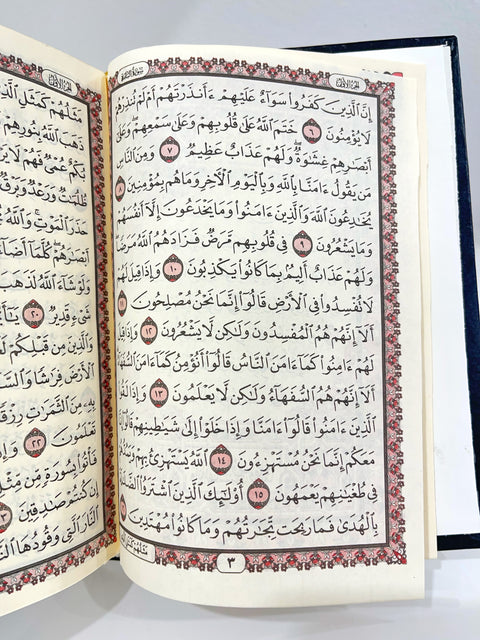 سورة البقرة
الجزء الأول
إِنَّ ٱلَّذِينَ كَفَرُوا۟ سَوَآءٌ عَلَيْهِمْ ءَأَنذَرْتَهُمْ أَمْ لَمْ تُنذِرْهُمْ
لَا يُؤْمِنُونَ ٦ خَتَمَ ٱللَّهُ عَلَىٰ قُلُوبِهِمْ وَعَلَىٰ سَمْعِهِمْ ۖ وَعَلَىٰٓ
أَبْصَـٰرِهِمْ غِشَـٰوَةٌ ۖ وَلَهُمْ عَذَابٌ عَظِيمٌ ٧ وَمِنَ ٱلنَّاسِ
مَن يَقُولُ ءَامَنَّا بِٱللَّهِ وَبِٱلْيَوْمِ ٱلْـَٔاخِرِ وَمَا هُم بِمُؤْمِنِينَ ٨
يُخَـٰدِعُونَ ٱللَّهَ وَٱلَّذِينَ ءَامَنُوا۟ وَمَا يَخْدَعُونَ إِلَّآ أَنفُسَهُمْ
وَمَا يَشْعُرُونَ ٩ فِى قُلُوبِهِم مَّرَضٌ فَزَادَهُمُ ٱللَّهُ مَرَضًا
وَلَهُمْ عَذَابٌ أَلِيمٌۢ بِمَا كَانُوا۟ يَكْذِبُونَ ١٠ وَإِذَا قِيلَ لَهُمْ
لَا تُفْسِدُوا۟ فِى ٱلْأَرْضِ قَالُوٓا۟ إِنَّمَا نَحْنُ مُصْلِحُونَ ١١
أَلَآ إِنَّهُمْ هُمُ ٱلْمُفْسِدُونَ وَلَـٰكِن لَّا يَشْعُرُونَ ١٢ وَإِذَا قِيلَ
لَهُمْ ءَامِنُوا۟ كَمَآ ءَامَنَ ٱلنَّاسُ قَالُوٓا۟ أَنُؤْمِنُ كَمَآ ءَامَنَ ٱلسُّفَهَآءُ
أَلَآ إِنَّهُمْ هُمُ ٱلسُّفَهَآءُ وَلَـٰكِن لَّا يَعْلَمُونَ ١٣ وَإِذَا لَقُوا۟
ٱلَّذِينَ ءَامَنُوا۟ قَالُوٓا۟ ءَامَنَّا وَإِذَا خَلَوْا۟ إِلَىٰ شَيَـٰطِينِهِمْ قَالُوٓا۟
مَعَكُمْ إِنَّمَا نَحْنُ مُسْتَهْزِءُونَ ١٤ ٱللَّهُ يَسْتَهْزِئُ بِهِمْ
فِى طُغْيَـٰنِهِمْ يَعْمَهُونَ ١٥ أُو۟لَـٰٓئِكَ ٱلَّذِينَ ٱشْتَرَوُا۟
بِٱلْهُدَىٰ فَمَا رَبِحَت تِّجَـٰرَتُهُمْ وَمَا كَانُوا۟ مُهْتَدِينَ
٣
مَثَلُهُمْ كَمَثَلِ
مَثَلُهُمْ كَمَثَلِ
ذَهَبَ ٱللَّهُ بِنُورِهِمْ
بُكْمٌ عُمْىٌ فَهُمْ لَا
ظُلُمَـٰتٌ وَرَعْدٌ وَبَرْقٌ
حَذَرَ ٱلْمَوْتِ ۚ وَٱللَّهُ
أَبْصَـٰرَهُمْ ۖ كُلَّمَآ
وَلَوْ شَآءَ ٱللَّهُ لَذَهَبَ
شَىْءٍ قَدِيرٌ ٢٠
وَٱلَّذِينَ مِن قَبْلِكُمْ
ٱلْأَرْضَ فِرَٰشًا
بِهِۦ مِنَ ٱلثَّمَرَٰتِ
تَعْلَمُونَ ٢٢
فَأْتُوا۟ بِسُورَةٍ مِّن
إِن كُنتُمْ صَـٰدِقِينَ
ٱلنَّارَ ٱلَّتِى وَقُودُهَا